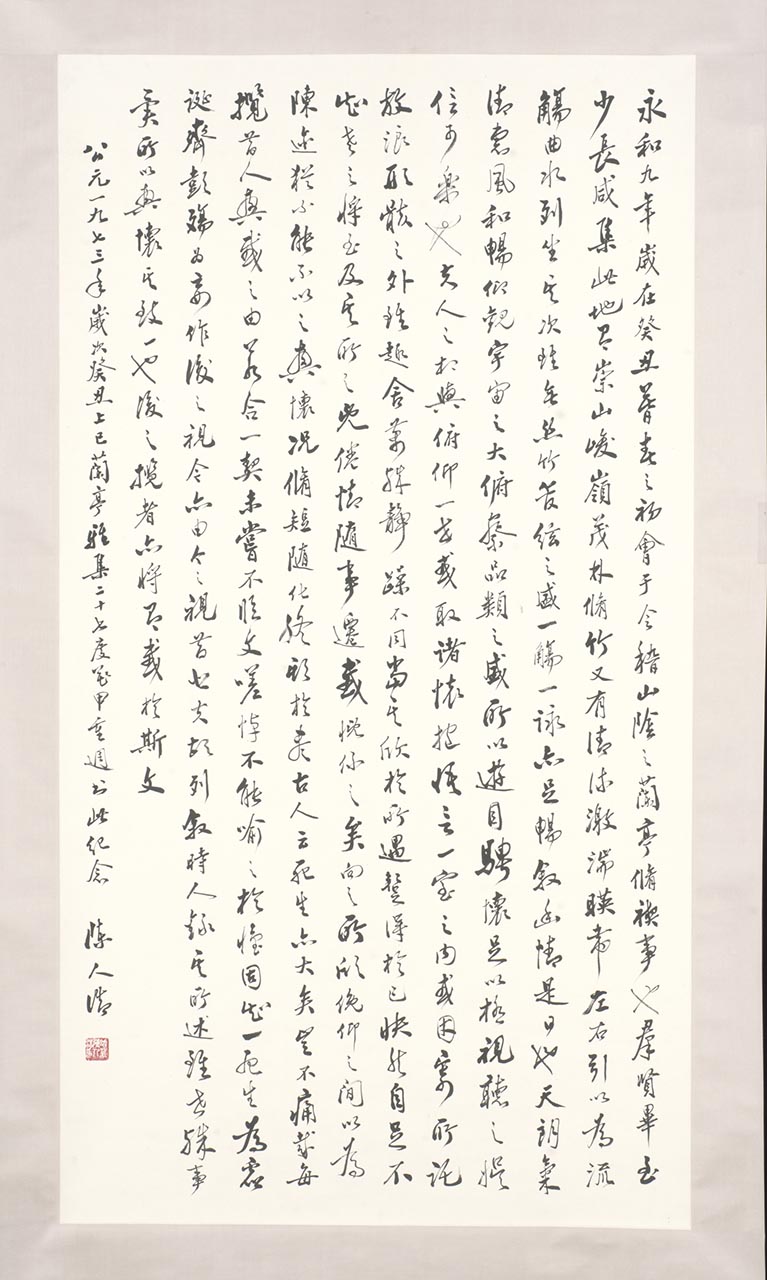 永和九年歲在癸丑暮春之初會于會稽山陰之蘭亭脩禊事也羣賢畢至
少長咸集此地有崇山峻嶺茂林脩竹又有清流激湍暎帶左右引以為流
觴曲水列坐其次雖無絲竹管絃之盛一觴一詠亦足暢敘幽情是日也天朗氣
清惠風和暢仰觀宇宙之大俯察品類之盛所以遊目騁懷足以極視聽之娛
信可樂也夫人之相與俯仰一世或取諸懷抱悟言一室之內或因寄所託
放浪形骸之外雖趣舍萬殊靜躁不同當其欣於所遇暫得於己快然自足不
知老之將至及其所之既倦情隨事遷感慨係之矣向之所欣俛仰之間以為
陳迹猶不能不以之興懷況脩短隨化終期於盡古人云死生亦大矣豈不痛哉每
攬昔人興感之由若合一契未嘗不臨文嗟悼不能喻之於懷固知一死生為虛
誕齊彭殤為妄作後之視今亦由今之視昔悲夫故列敘時人錄其所述雖世殊事
異所以興懷其致一也後之攬者亦將有感於斯文
公元一九七三年歲次癸丑上巳蘭亭雅集二十七度花甲重週書此紀念 陳人浩